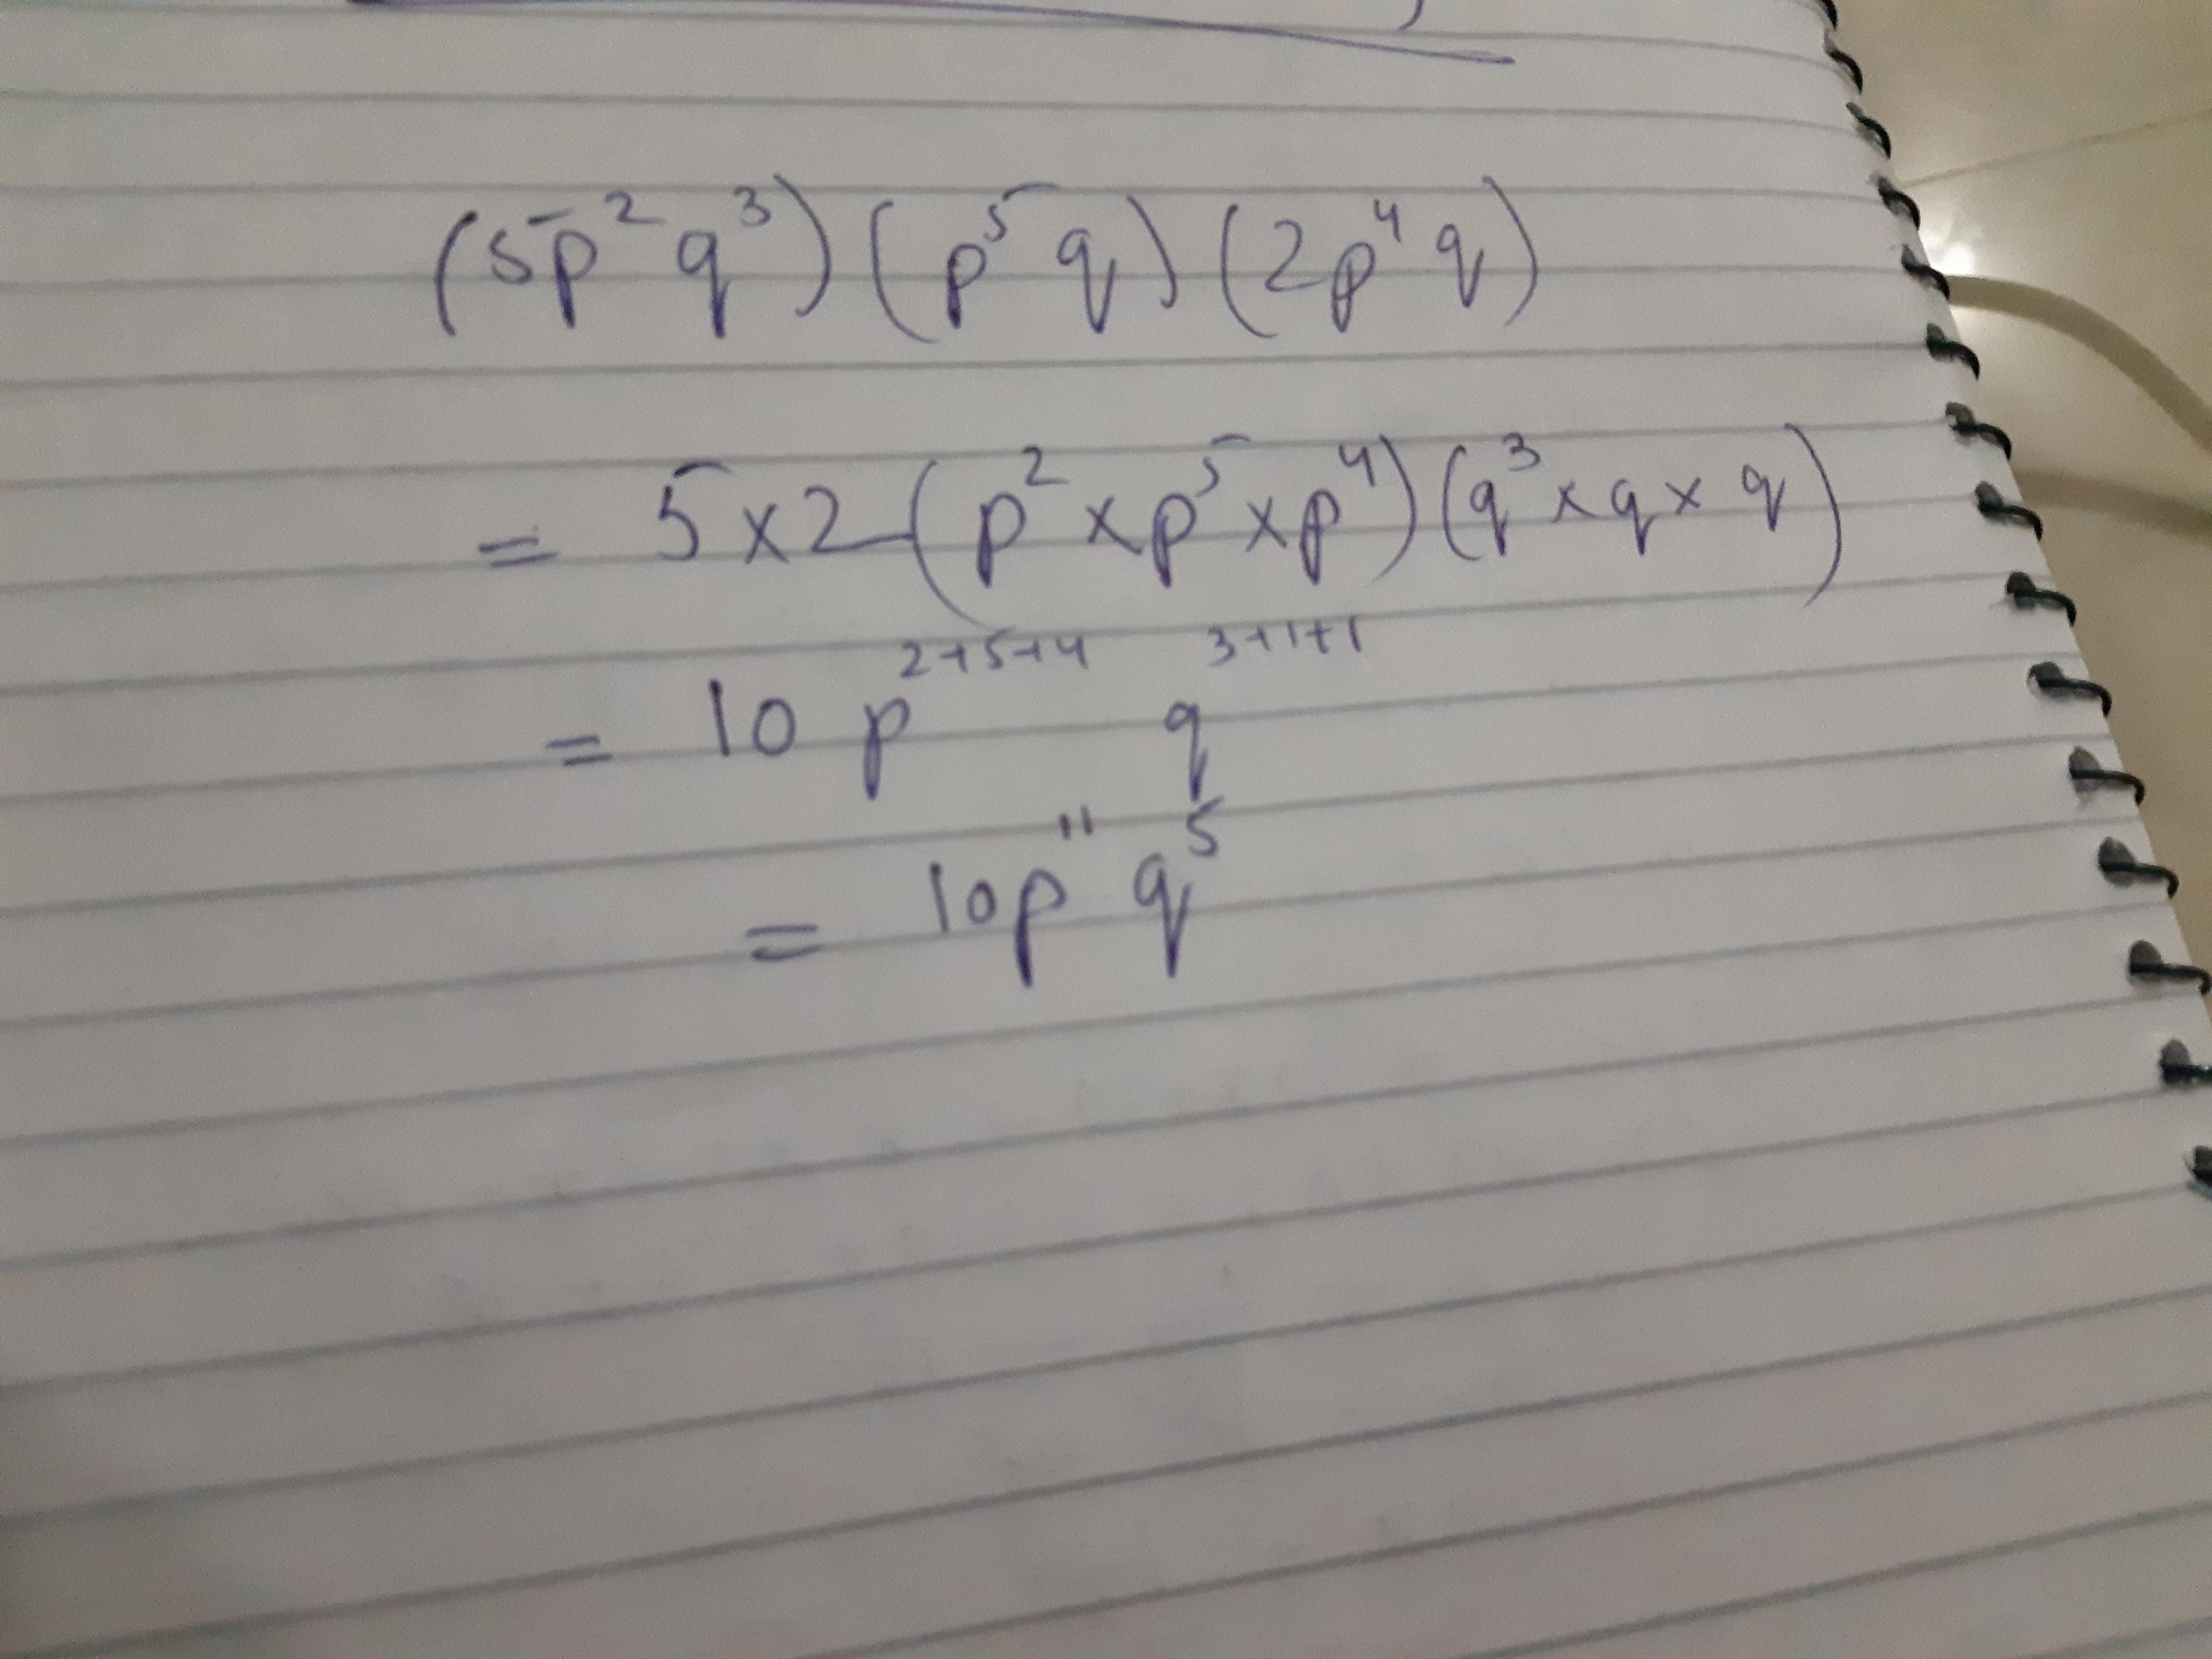 (5p² q³) (p⁵ q) (2p⁴ q)
= 5 × 2 (p² × p⁵ × p⁴) (q³ × q × q)
= 10 p²⁺⁵⁺⁴ q³⁺¹⁺¹
= 10p¹¹ q⁵